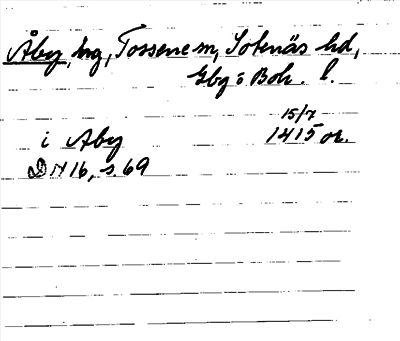 Åby, hg, Tossene sn, Sotenäs hd,
Gbg o Boh. l.
15/7
i Aby 1415 or.
DN 16, s. 69